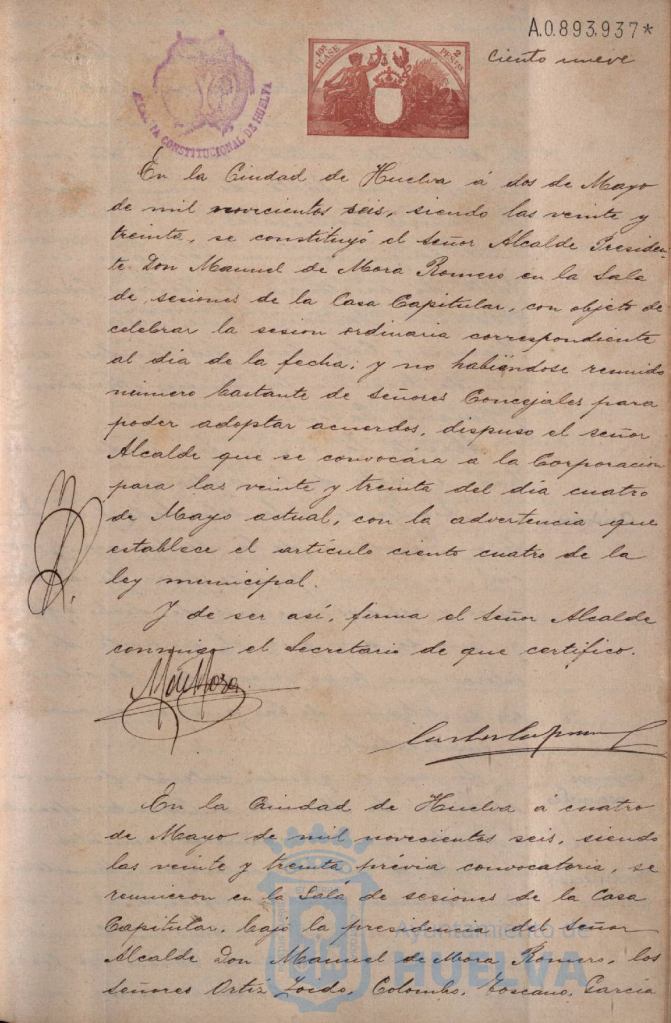 A.0.893.937*
10ª CLASE
2 PESETAS
Ciento nueve
ALCALDIA CONSTITUCIONAL DE HUELVA
En la Ciudad de Huelva á dos de Mayo
de mil novecientos seis, siendo las veinte y
treinta, se constituyó el Señor Alcalde Presiden-
te Don Manuel de Mora Romero en la Sala
de sesiones de la Casa Capitular, con objeto de
celebrar la sesion ordinaria correspondiente
al dia de la fecha; y no habiendose reunido
número bastante de Señores Concejales para
poder adoptar acuerdos, dispuso el señor
Alcalde que se convocára a la Corporacion
para las veinte y treinta del dia cuatro
de Mayo actual, con la advertencia que
establece el artículo ciento cuatro de la
ley municipal.
Y de ser así, firma el Señor Alcalde
conmigo el Secretario de que certifico.
En la Ciudad de Huelva á cuatro
de Mayo de mil novecientos seis, siendo
las veinte y treinta prévia convocatoria, se
reunieron en la Sala de sesiones de la Casa
Capitular, bajo la presidencia del Señor
Alcalde Don Manuel de Mora Romero, los
Señores Ortiz, Zoido, Colombo, Toscano, Garcia
Ayuntamiento de
HUELVA